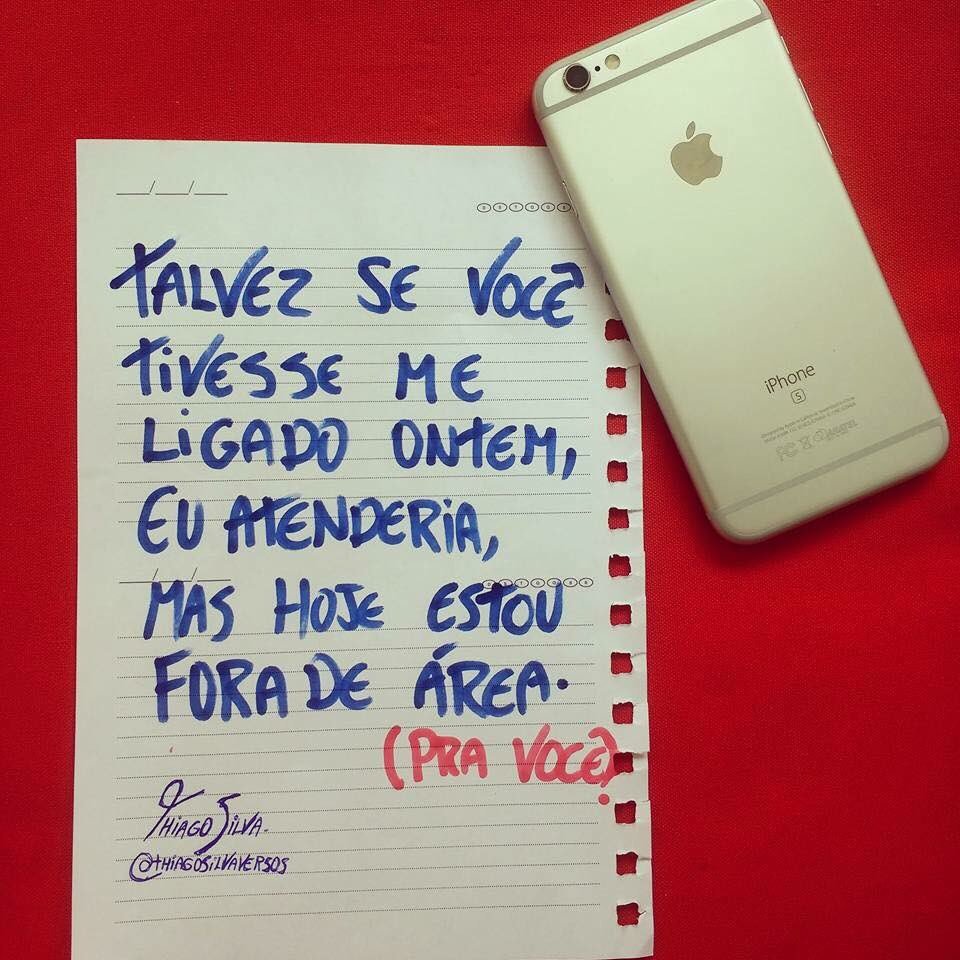 TALVEZ SE VOCÊ
TIVESSE ME
LIGADO ONTEM,
EU ATENDERIA,
MAS HOJE ESTOU
FORA DE ÁREA.
(PRA VOCÊ).
THIAGO SILVA.
@THIAGOSILVAVERSOS
iPhone
S